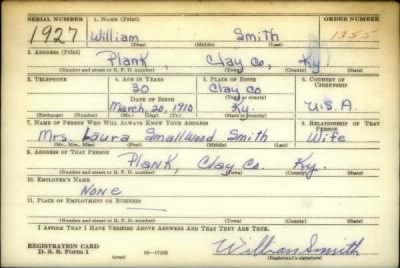 SERIAL NUMBER 1. NAME (Print) ORDER NUMBER
1927 William Smith 1355
(First) (Middle) (Last)
2. ADDRESS (Print)
Plank, Clay Co, Ky
(Number and street or R. F. D. number) (Town) (County) (State)
3. TELEPHONE 4. AGE IN YEARS 5. PLACE OF BIRTH 6. COUNTRY OF CITIZENSHIP
30 Clay Co
DATE OF BIRTH (Town or county)
March, 20, 1910 Ky. U.S.A.
(Exchange) (Number) (Mo.) (Day) (Yr.) (State or country)
7. NAME OF PERSON WHO WILL ALWAYS KNOW YOUR ADDRESS 8. RELATIONSHIP OF THAT PERSON
Mrs. Laura Smallwood Smith Wife
(Mr., Mrs., Miss) (First) (Middle) (Last)
9. ADDRESS OF THAT PERSON
Plank, Clay Co. Ky.
(Number and street or R. F. D. number) (Town) (County) (State)
10. EMPLOYER'S NAME
None
11. PLACE OF EMPLOYMENT OR BUSINESS
(Number and street or R. F. D. number) (Town) (County) (State)
I AFFIRM THAT I HAVE VERIFIED ABOVE ANSWERS AND THAT THEY ARE TRUE.
REGISTRATION CARD
D. S. S. Form 1 William Smith
(Registrant's signature)